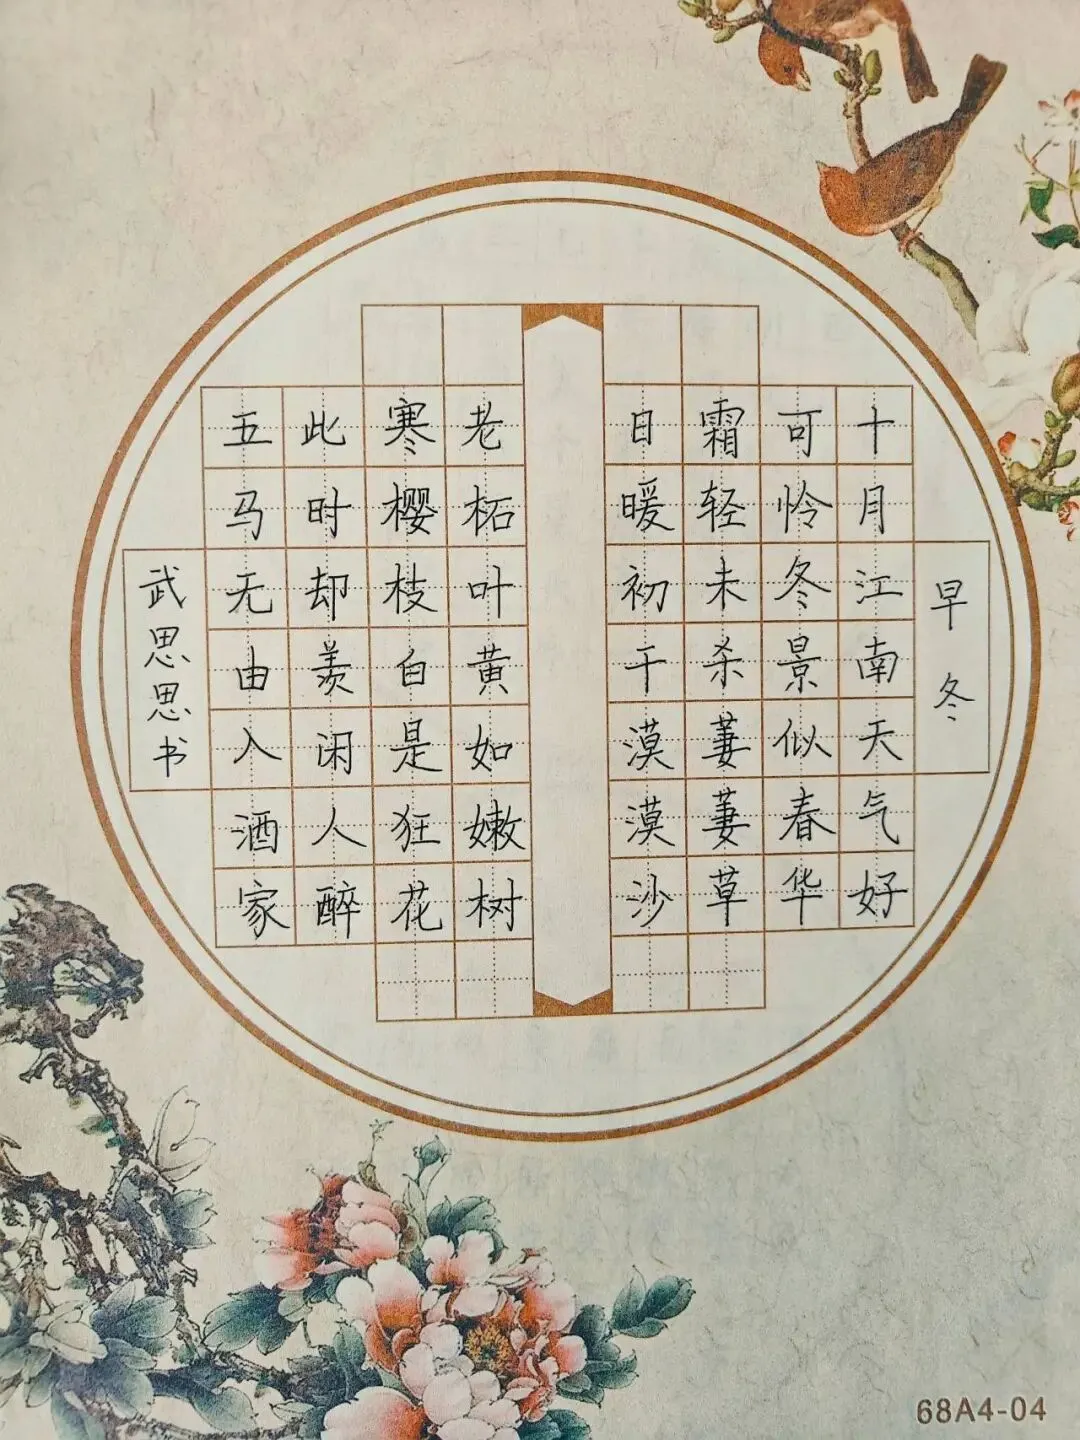 早冬
十月江南天气好
可怜冬景似春华
霜轻未杀萋萋草
日暖初干漠漠沙
老柘叶黄如嫩树
寒樱枝白是狂花
此时却羡闲人醉
五马无由入酒家
武思思书
68A4-04